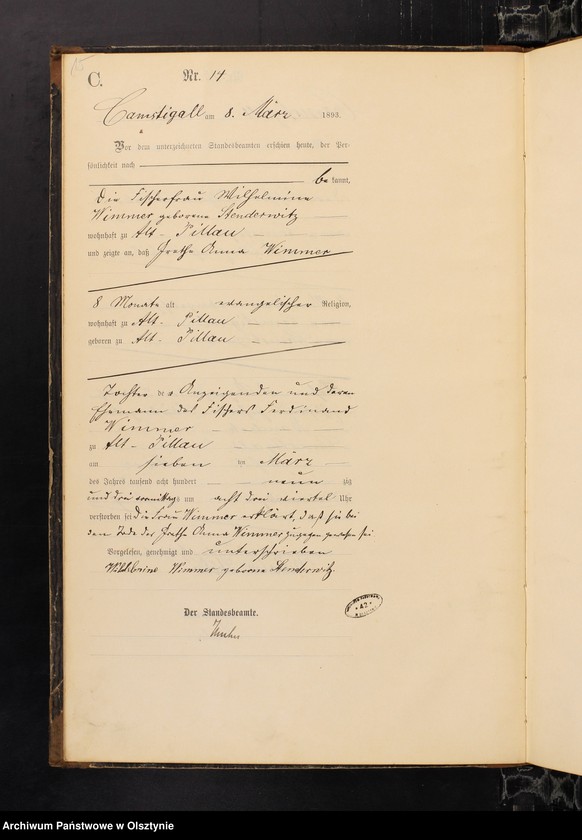 C.
Nr. 14
Camstigall am 8. März 1893.
Vor dem unterzeichneten Standesbeamten erschien heute, der Per-
sönlichkeit nach
be kannt,
die Fischerfrau Wilhelmine
Wimmer geborene Stenderwitz
wohnhaft zu Alt-Pillau
und zeigte an, daß Grethe Anna Wimmer
8 Monate alt evangelischer Religion,
wohnhaft zu Alt-Pillau
geboren zu Alt-Pillau
Tochter der Anzeigenden und deren
Ehemann des Fischers Ferdinand
Wimmer
zu Alt-Pillau
am sieben ten März
des Jahres tausend acht hundert neun zig
und drei vormittags um acht drei viertel Uhr
verstorben sei die Frau Wimmer erklärt, daß sie bei
dem Tode der Grethe Anna Wimmer zugegen gewesen sei
Vorgelesen, genehmigt und unterschrieben
Wilhelmine Wimmer geborne Stenderwitz.
Der Standesbeamte.
42
Archiwum Państwowe w Olsztynie